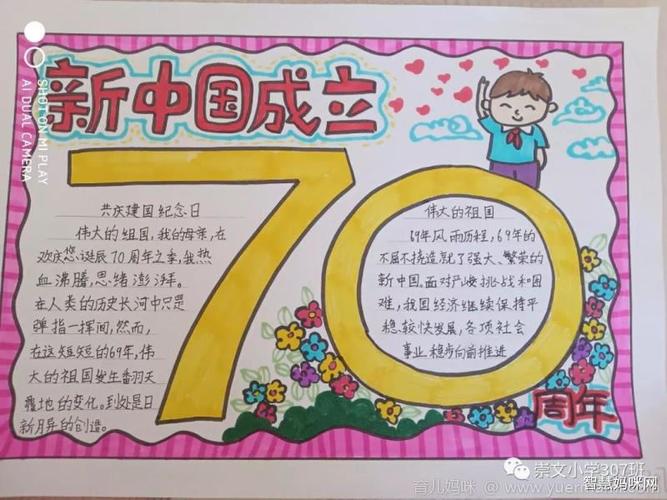 新中国成立
70
周年
共庆建国纪念日
伟大的祖国,我的母亲,在
欢庆您诞辰70周年之季,我热
血沸腾,思绪澎湃。
在人类的历史长河中只是
弹指一挥间,然而,
在这短短的69年,伟
大的祖国发生翻天
覆地的变化。到处是日
新月异的创造。
伟大的祖国
69年风雨历程,69年的
不屈不挠造就了强大、繁荣的
新中国。面对严峻挑战和困
难,我国经济继续保持平
稳较快发展,各项社会
事业稳步向前推进
SHOT ON MI PLAY
AI DUAL CAMERA
崇文小学307班
智慧妈咪网
育儿妈咪 @ www.yuer